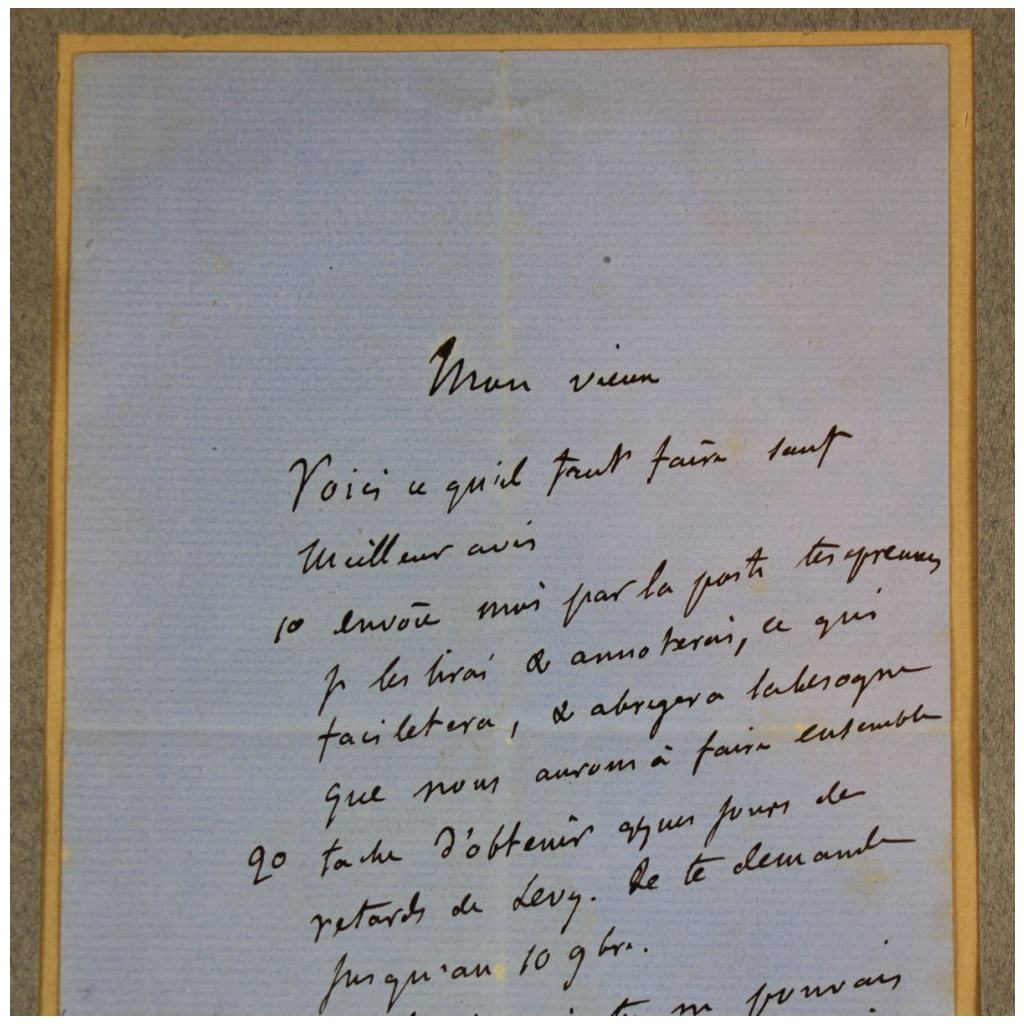 Mon vieux
Voici ce qu'il faut faire sauf
Meilleur avis
1o envoie moi par la poste tes epreuves
je les lirai & annoterai, ce qui
faciletera, & abregera la besogne
que nous aurons à faire ensemble
2o tache d'obtenir qques jours de
retards de Levy. Je te demande
jusqu'au 10 9bre.
ne pouvais